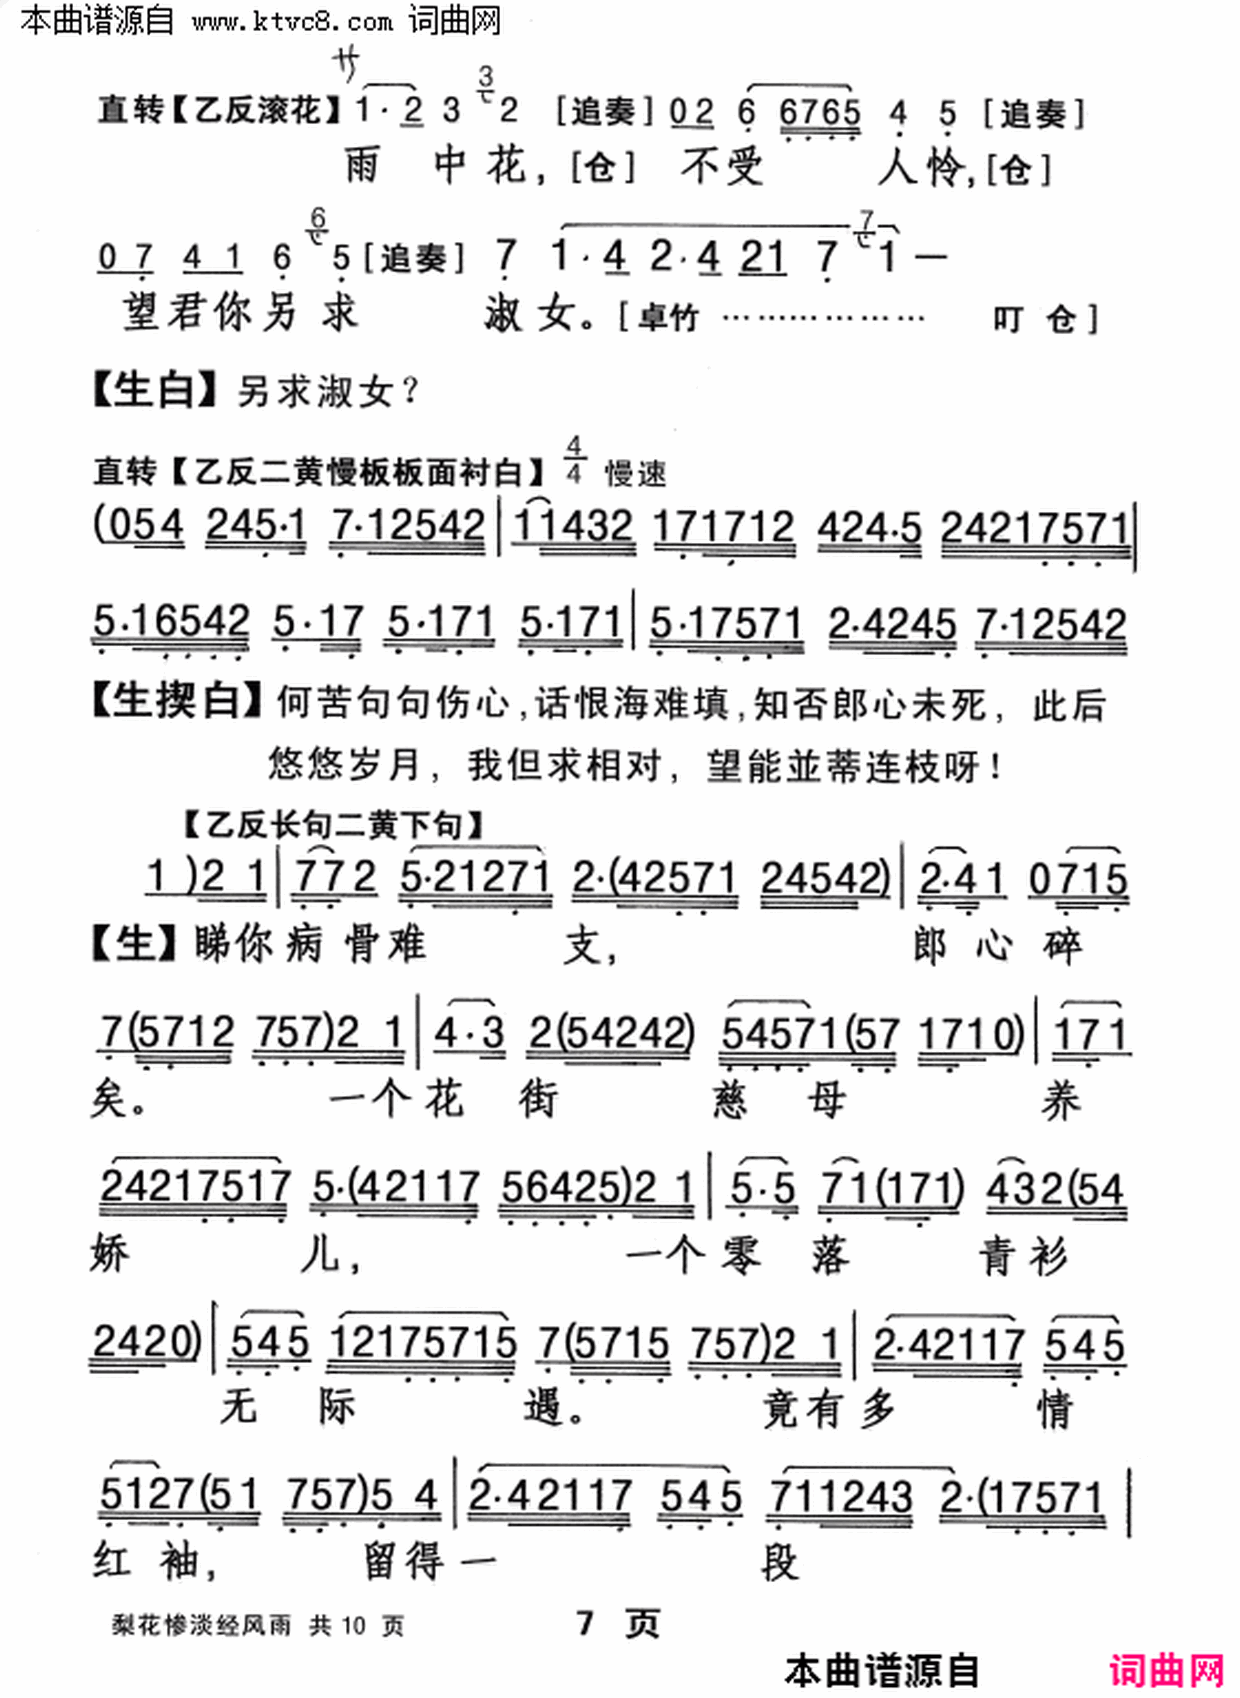 本曲谱源自 www.ktvc8.com 词曲网
サ
直转【乙反滚花】1·2 3 3 2 [追奏] 02 6 6765 4 5 [追奏]
雨 中花,[仓] 不受 人怜,[仓]
07 41 6 6 5 [追奏] 7 1·4 2·4 21 7 7 1 —
望君你另求 淑女。[卓竹 ………………… 叮 仓]
【生白】另求淑女?
直转【乙反二黄慢板板面衬白】4/4 慢速
(054 245·1 7·12542|11432 171712 424·5 24217571|
5·16542 5·17 5·171 5·171|5·17571 2·4245 7·12542
【生揳白】何苦句句伤心,话恨海难填,知否郎心未死, 此后
悠悠岁月, 我但求相对, 望能並蒂连枝呀!
【乙反长句二黄下句】
1)2 1|772 5·21271 2·(42571 24542)|2·41 0715
【生】睇你病骨难 支, 郎心碎
7(5712 757)2 1|4·3 2(54242) 54571(57 1710)|171
矣。 一个花 街 慈 母 养
24217517 5·(42117 56425)2 1|5·5 71(171) 432(54
娇 儿, 一个零 落 青衫
2420)|545 12175715 7(5715 757)2 1|2·42117 545
无 际 遇。 竟有多 情
5127(51 757)5 4|2·42117 545 711243 2·(17571|
红 袖, 留得一 段
梨花惨淡经风雨 共10 页 7 页
本曲谱源自 词曲网